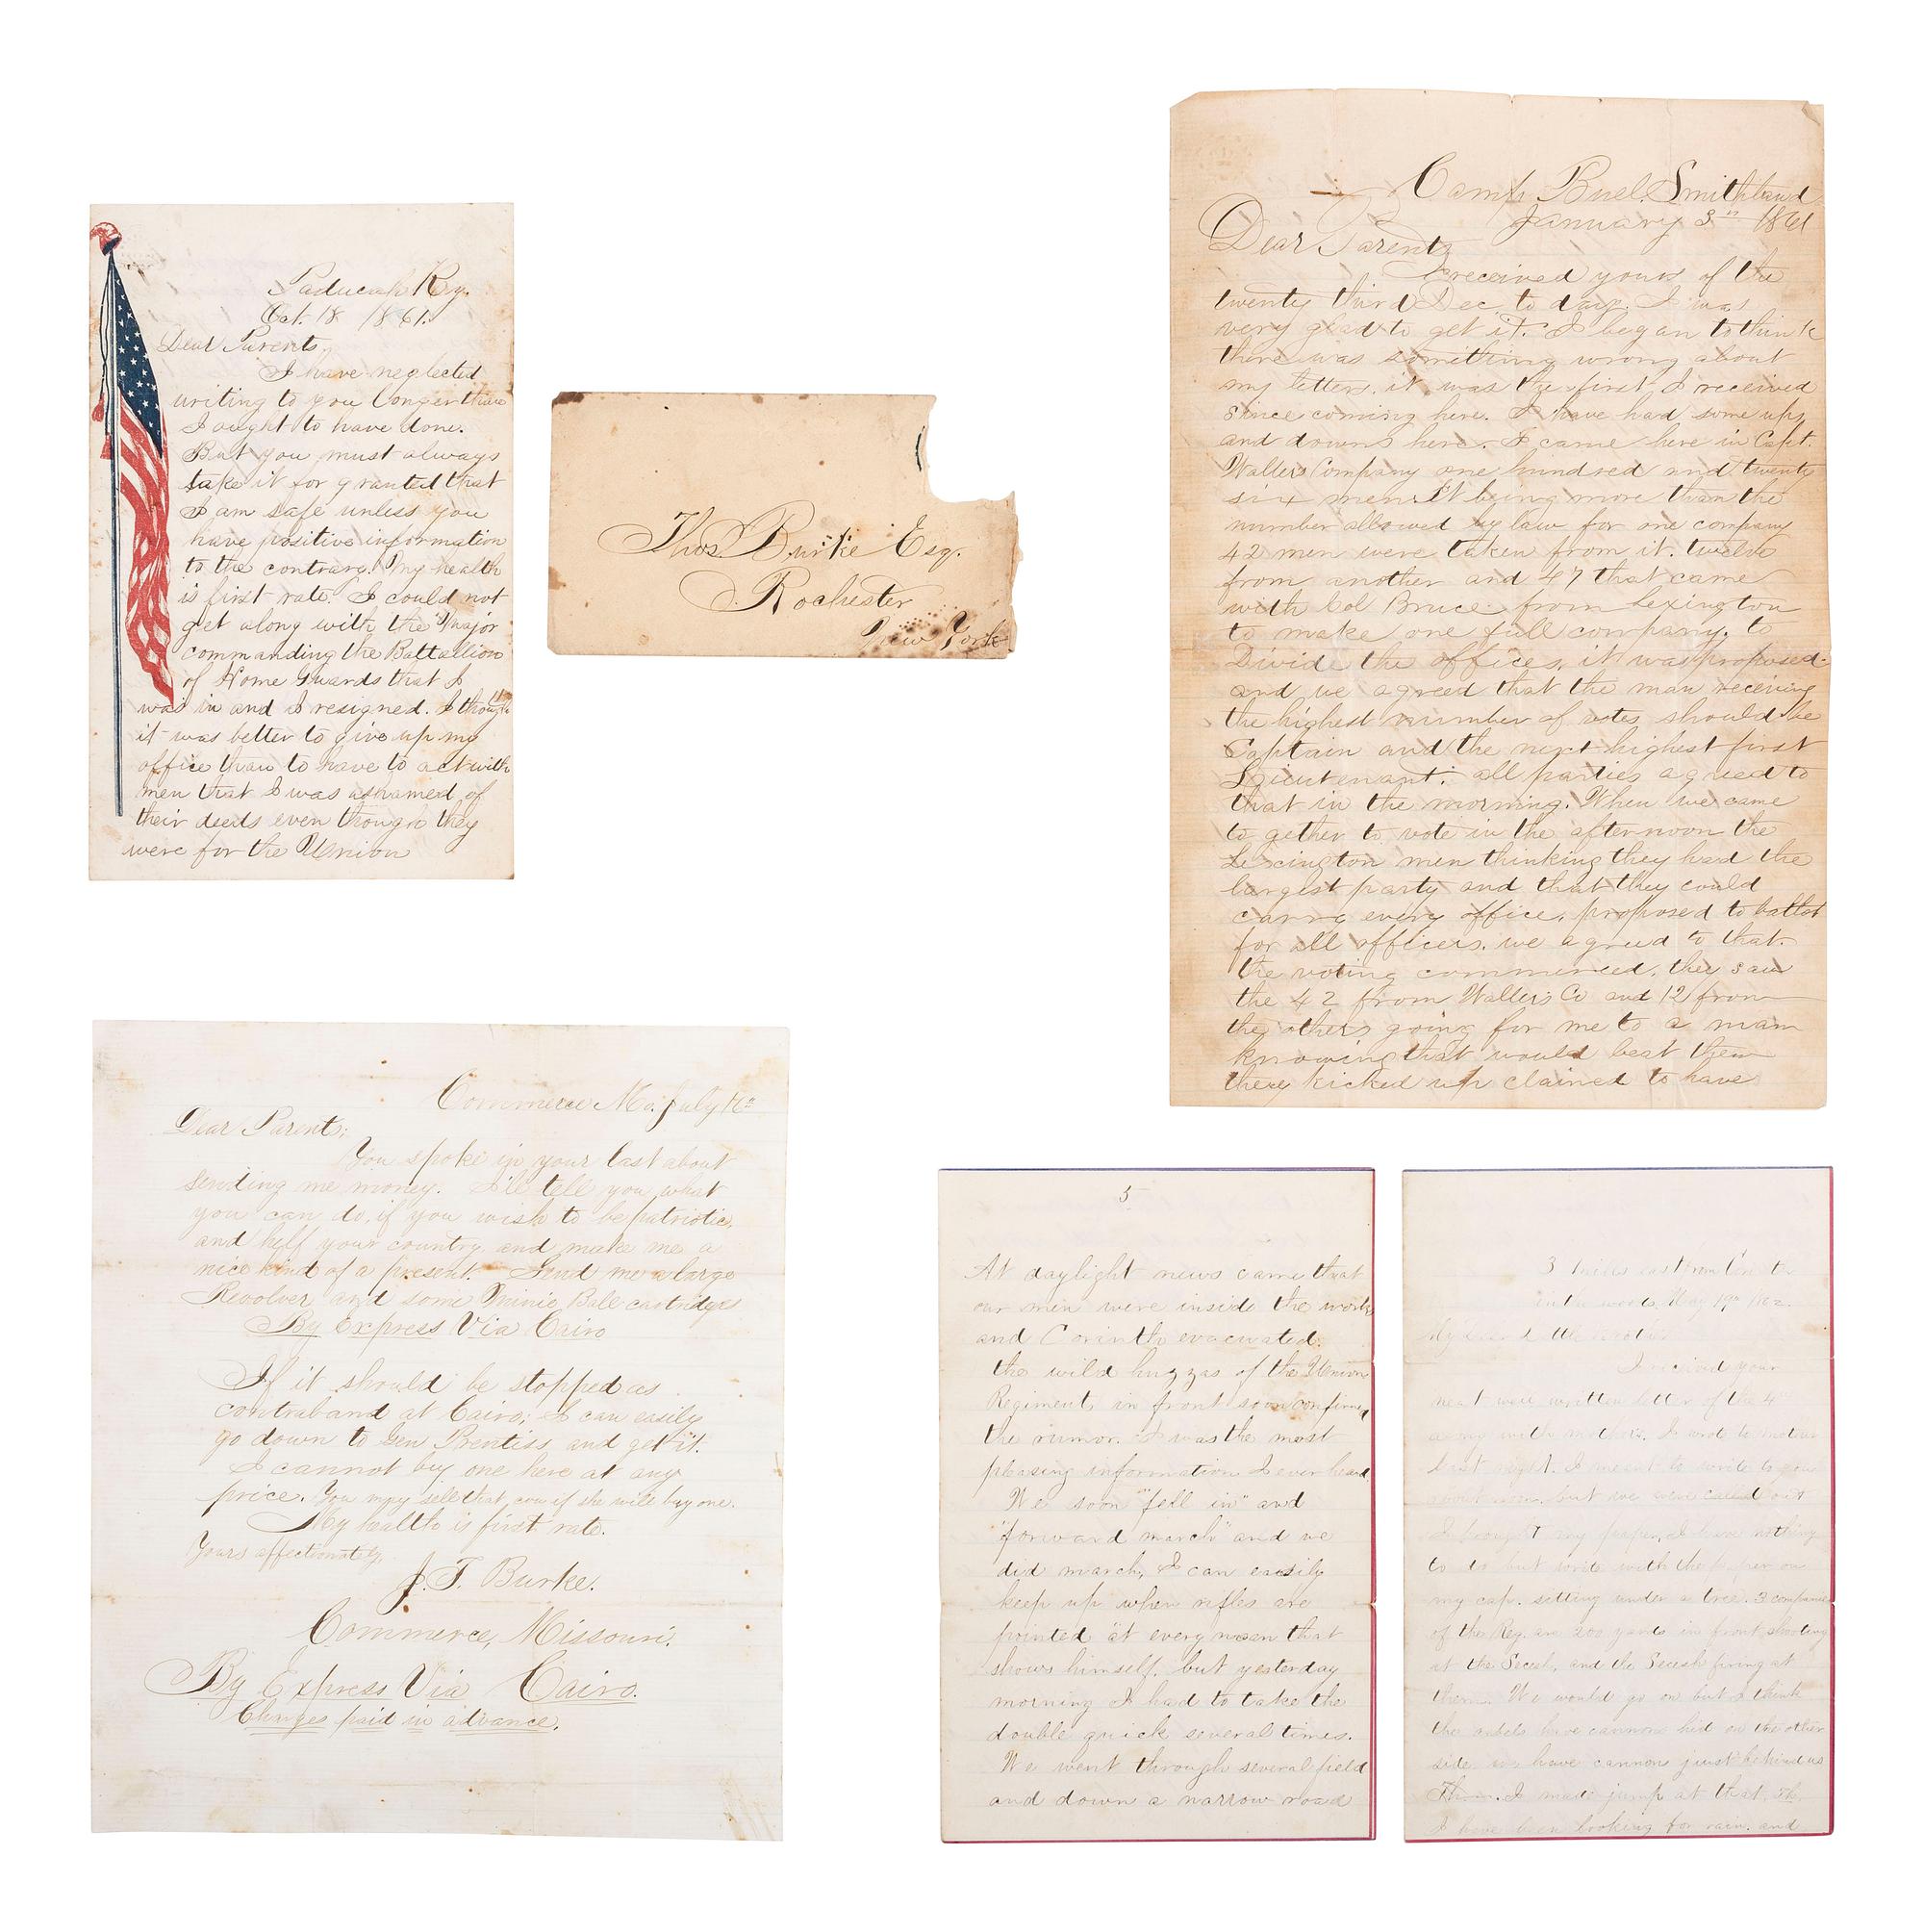 Paducah Ky.
Oct. 18 1861.
Dear Parents,
I have neglected
writing to you longer than
I ought to have done.
But you must always
take it for granted that
I am safe unless you
have positive information
to the contrary. My health
is first rate. I could not
get along with the Major
commanding the Battallion
of Home Guards that I
was in and I resigned. I thought
it was better to give up my
office than to have to act with
men that I was ashamed of
their deeds even though they
were for the Union
Thos. Burke Esq.
Rochester
New York
Camp Buel. Smithland
January 3rd 1861
Dear Parents
I received yours of the
twenty third Dec to day. I was
very glad to get it. I began to think
there was something wrong about
my letters. it was the first I received
since coming here. I have had some ups
and downs here. I came here in Capt.
Wallers Company one hundred and twenty
six men. It being more than the
number allowed by law for one company
42 men were taken from it. twelve
from another and 47 that came
with Col Bruce from Lexington
to make one full company. to
Divide the offices, it was proposed
and we agreed that the man receiving
the highest number of votes should be
Captain and the next highest first
Lieutenant. all parties agreed to
that in the morning. When we came
to gether to vote in the afternoon the
Lexington men thinking they had the
largest party and that they could
carry every office, proposed to ballot
for all officers. we agreed to that.
the voting commenced. they saw
the 42 from Wallers Co and 12 from
the others going for me to a man
knowing that would beat them
they kicked up claimed to have
Commerce Mo. July
Dear Parents:
You spoke in your last about
sending me money. I'll tell you what
you can do, if you wish to be patriotic,
and help your country and make me a
nice kind of a present. Send me a large
Revolver and some Minie Ball cartridges
By Express Via Cairo
If it should be stopped as
contraband at Cairo; I can easily
go down to Gen Prentiss and get it.
I cannot buy one here at any
price. You may sell that cow if she will buy one.
My health is first rate.
Yours affectionately,
J. T. Burke.
Commerce, Missouri.
By Express Via Cairo.
Charges paid in advance.
5
At daylight news came that
our men were inside the works
and Corinth evacuated.
the wild huzzas of the Union
Regiment in front soon confirmed
the rumor. It was the most
pleasing information I ever heard.
We soon "fell in" and
"forward march" and we
did march, I can easily
keep up when rifles are
pointed at every man that
shows himself. but yesterday
morning I had to take the
double quick several times.
We went through several field
and down a narrow road
3 Miles east from Corinth
in the woods, May 19th 1862.
My dear little brother
I received your
neat well written letter of the 4th
along with mothers. I wrote to mother
last night. I meant to write to you
about noon. but we were called out
I brought my paper, I have nothing
to do but write with the paper on
my cap. setting under a tree. 3 companies
of the Reg. are 200 yards in front shooting
at the Secesh, and the Secesh firing at
them. We would go on but I think
the rebels have cannons hid on the other
side we have cannon just behind us
I made jump at that.
I have been looking for rain. and